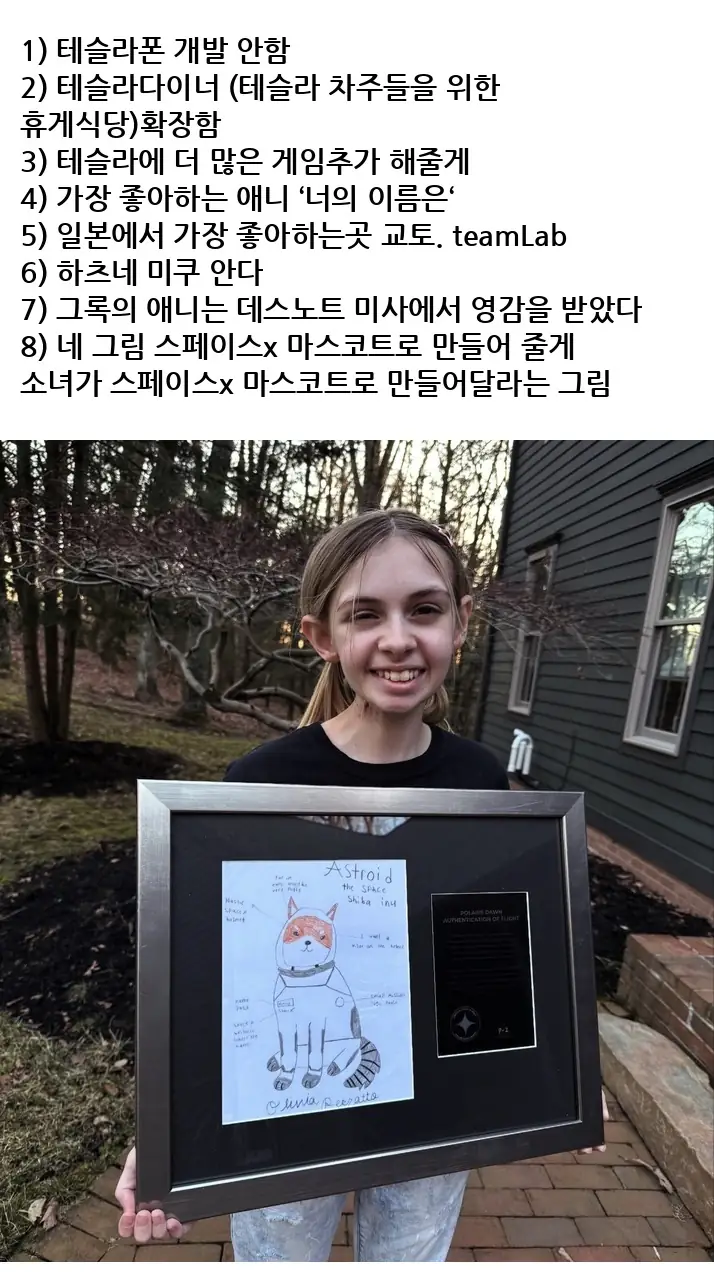 1) 테슬라폰 개발 안함
2) 테슬라다이너 (테슬라 차주들을 위한
휴게식당)확장함
3) 테슬라에 더 많은 게임추가 해줄게
4) 가장 좋아하는 애니 ‘너의 이름은‘
5) 일본에서 가장 좋아하는곳 교토. teamLab
6) 하츠네 미쿠 안다
7) 그록의 애니는 데스노트 미사에서 영감을 받았다
8) 네 그림 스페이스x 마스코트로 만들어 줄게
소녀가 스페이스x 마스코트로 만들어달라는 그림
Astroid
the space
Shiba inu
POLARIS DAWN
AUTHENTICATION OF FLIGHT